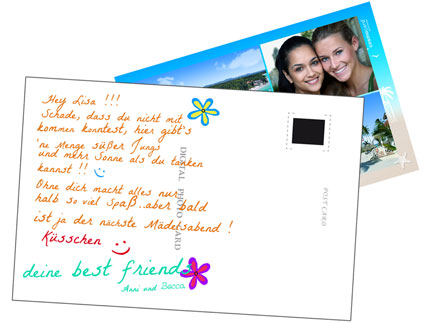 Hey Lisa !!!
Schade, dass du nicht mit
kommen konntest, hier gibt's
'ne Menge süßer Jungs
und mehr Sonne als du tanken
kannst !!
Ohne dich macht alles nur
halb so viel Spaß..aber bald
ist ja der nächste Mädelsabend !
Küsschen
deine best friends
Anni und Becca
DIGITAL PHOTO CARD
POSTCARD